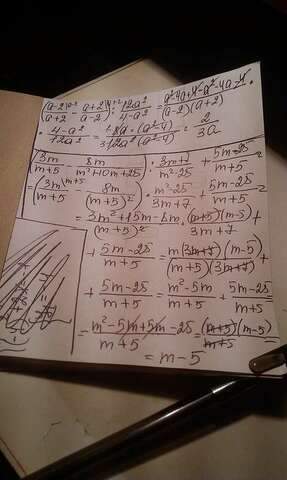 (a-2)^{a-2}/(a+2) - (a+2)^{a+2}/(a-2)) : 12a²/(4-a²) = (a²-4a+4-a²-4a-4)/((a-2)(a+2)) ·
· (4-a²)/(12a²) = (-8a·(a²-4))/(12a²(a²-4)) = 2/(3a)
(3m/(m+5) - 8m/(m²+10m+25)) : (3m+7)/(m²-25) + (5m-25)/(m+5) =
= (3m^{m+5}/(m+5) - 8m/(m+5)²) · (m²-25)/(3m+7) + (5m-25)/(m+5) =
= (3m²+15m-8m)/(m+5)² · ((m+5)(m-5))/(3m+7) +
+ (5m-25)/(m+5) = (m(3m+7)(m-5))/((m+5)(3m+7)) +
+ (5m-25)/(m+5) = (m²-5m)/(m+5) + (5m-25)/(m+5)
= (m²-5m+5m-25)/(m+5) = ((m+5)(m-5))/(m+5) =
= m-5